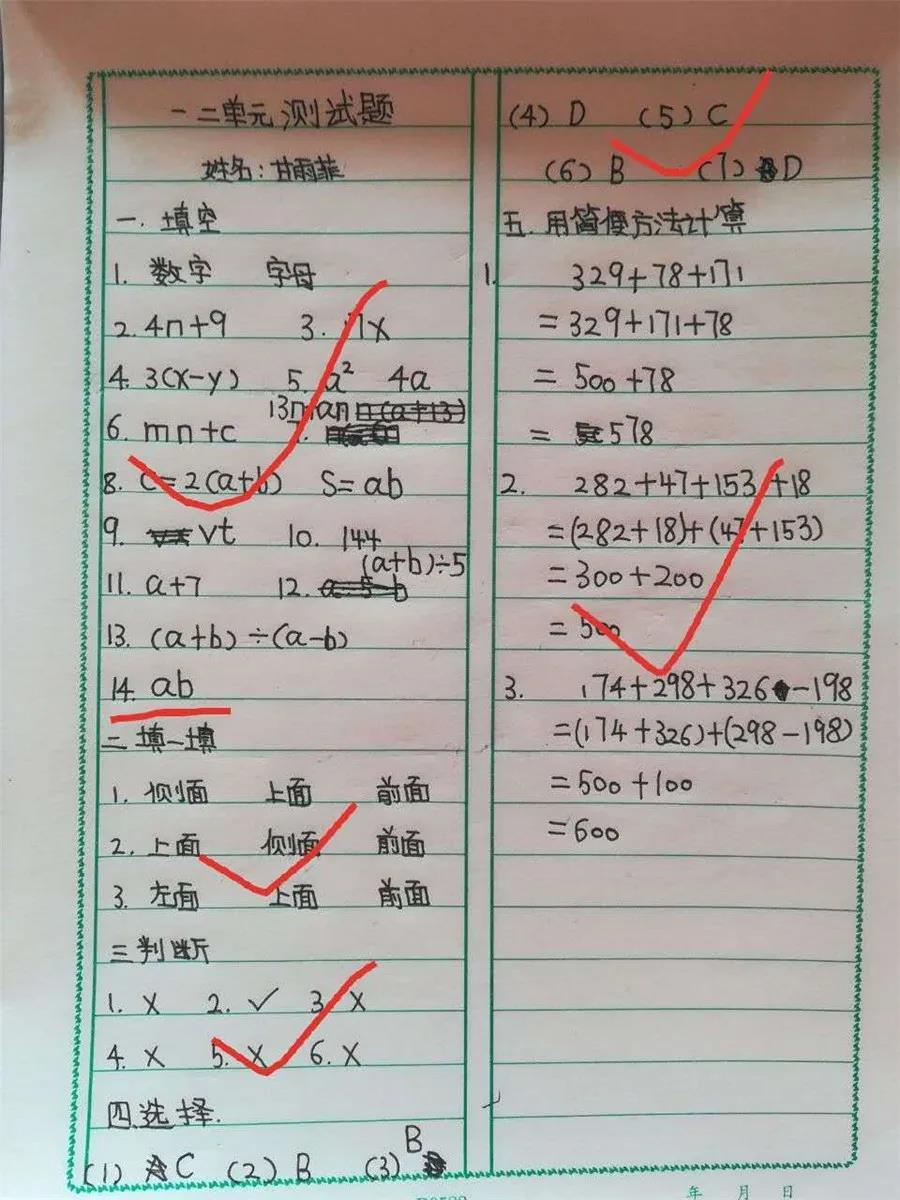 一二单元测试题
姓名:甘雨菲
一.填空
1. 数字 字母
2. 4n+9 3. 7x
4. 3(x-y) 5. a² 4a
6. mn+c 7. 13n+an
8. C=2(a+b) S=ab
9. vt 10. 144
11. a+7 12. (a+b)÷5
13. (a+b)÷(a-b)
14. ab
二填一填
1. 侧面 上面 前面
2. 上面 侧面 前面
3. 左面 上面 前面
三判断
1. X 2. ✓ 3. X
4. X 5. X 6. X
四选择.
(1) C (2) B (3) B
(4) D (5) C
(6) B (7) D
五.用简便方法计算
1. 329+78+171
=329+171+78
=500+78
=578
2. 282+47+153+18
=(282+18)+(47+153)
=300+200
=500
3. 174+298+326-198
=(174+326)+(298-198)
=500+100
=600
年 月 日